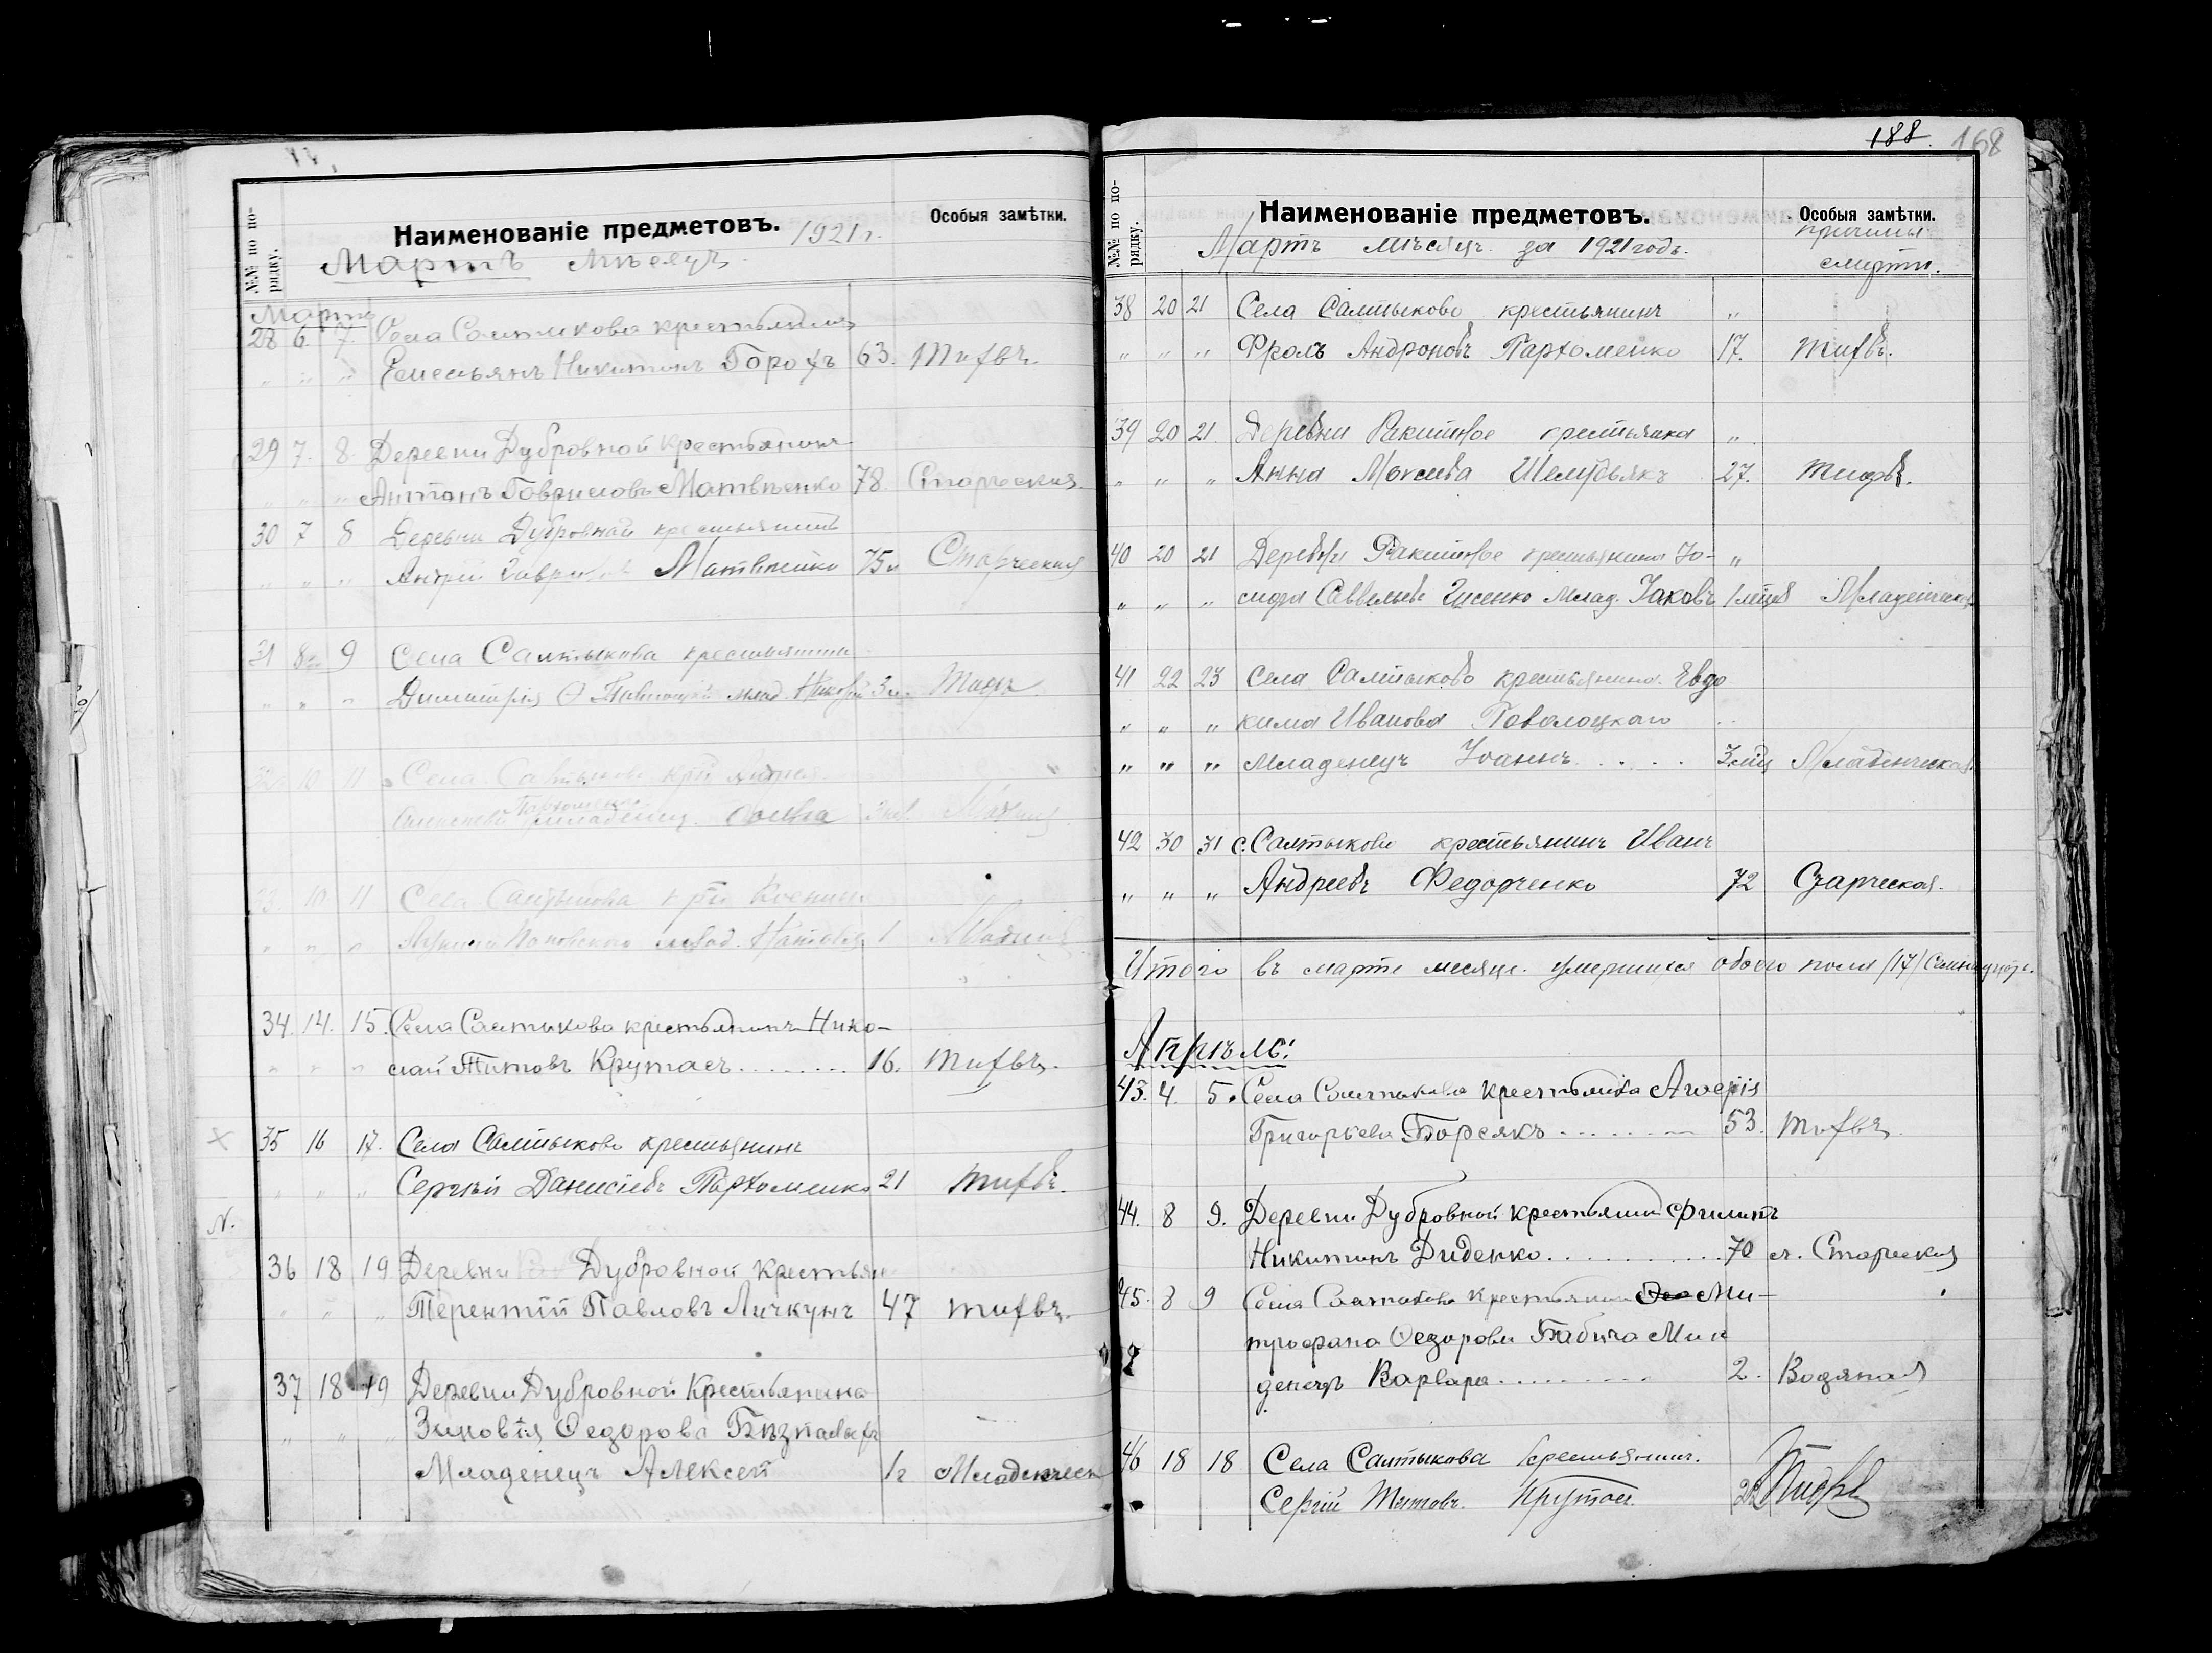 188. 168
№№ по по-
рядку.
Наименованіе предметовъ. 1921 г.
Особыя замѣтки.
Мартъ мѣсяцъ
Мартъ
28 6. 7. Села Салтикова крестьянинъ
" " " Емельянъ Никитинъ Горохъ 63. Тифъ.
29 7. 8 Деревни Дубровной крестьянинъ
" " " Антонъ Гавриловъ Матвѣенко 78. Старческая.
30 7 8 Деревни Дубровной крестьянинъ
" " " Андрій Гаврилов Матвѣенко 75 Старческая
31 8 9 Села Салтыкова крестьянина
" " " Димитрія млад. 3 Тифъ
32 10 11 Села Салтыкова
Пархоменко
младенец. 3
33. 10 11 Села Салтыкова
" " " млад. 1
34. 14. 15. Села Салтыкова крестьянинъ Нико-
" " " лай Титовъ Крутась........ 16. Тифъ.
35 16 17. Села Салтыково крестьянинъ
" " " Сергѣй Данисіевъ Пархоменко 21 Тифъ.
N.
36 18 19 Деревни Дубровной Крестьян
" " " Терентій Павловъ Личкунъ 47 Тифъ.
37 18 19 Деревни Дубровной Крестьянина
" " " Зиновія Ѳедорова
Младенецъ Алексей 1/2 Младенческ
№№ по по-
рядку.
Наименованіе предметовъ.
Особыя замѣтки.
Мартъ мѣсяцъ за 1921 годъ.
причины
смерти.
38 20 21 Села Салтыково крестьянинъ "
" " " Фролъ Андроновъ Пархоменко 17. Тифъ.
39 20 21 Деревни Ракитное крестьянка "
" " " Анна 27. Тифъ.
40 20 21 Деревни Ракитное крестьянина Іо- "
" " " сифа Савельева млад. Іаковъ 1 Младенческая
41 22 23 Села Салтыково крестьянина Евдо
" " " кима Иванова Поволоцкаго
" " " младенецъ Іоаннъ..... 3 мц Младенческая.
42 30 31 с. Салтыково крестьянинъ Иванъ
" " " Андреевъ Федорченко 72 Старческая.
Итого въ марте месяце умершихся обоего пола /17/ Семнадцать.
Апрѣль:
43. 4. 5. Села Салтыкова крестьянка
Григорьева Борсякъ....... 53. Тифъ.
44. 8 9. Деревни Дубровной крестьянинъ Филипъ
Никитинъ Диденко........... 70 л. Старческая
45. 8 9 Села Салтыкова Крестьянина Ми-
трофана Ѳедорова Бабича Мла
денецъ Варвара......... 2. Водяная
46 18 18 Села Салтыкова крестьянинъ.
Сергій Титовъ. Крутась. Тифъ